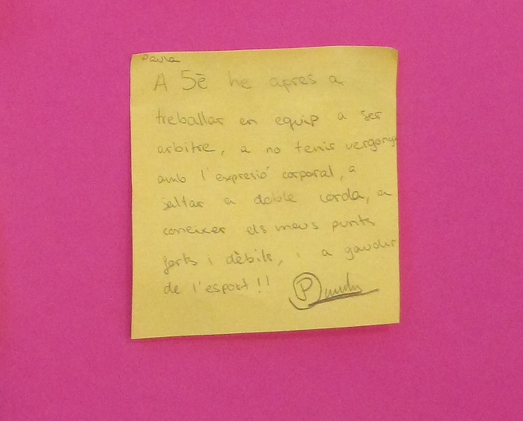 Paula
A 5è he apres a
treballar en equip a ser
arbitre, a no tenir vergonya
amb l'expresió corporal, a
saltar a doble corda, a
coneixer els meus punts
forts i dèbils, i a gaudir
de l'esport!!